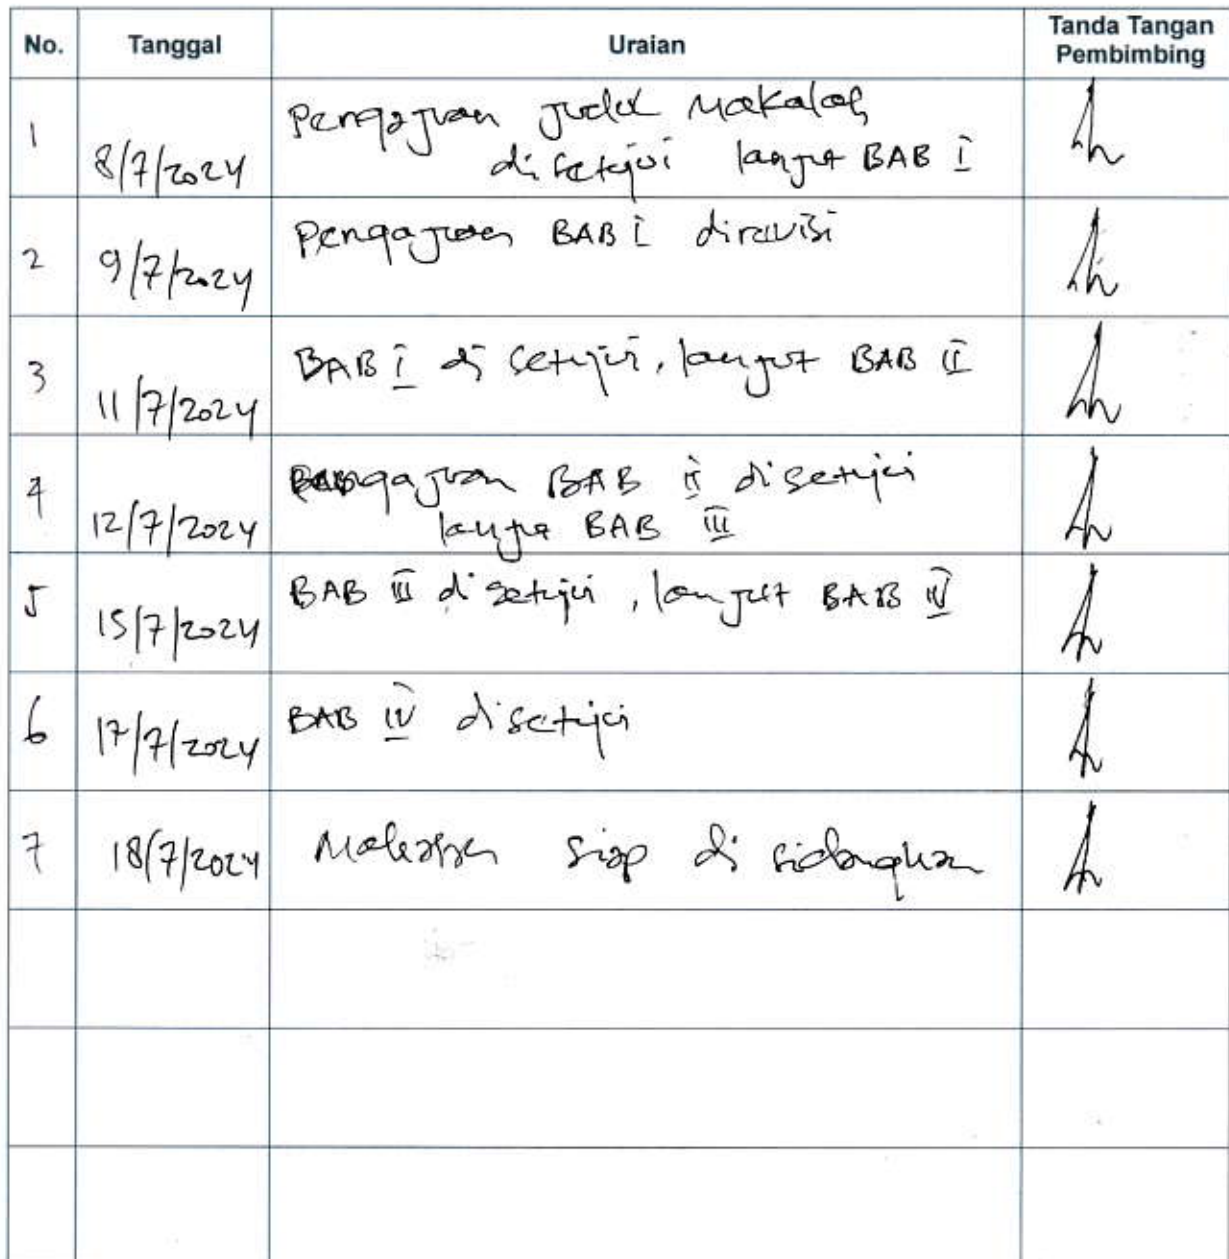 No. Tanggal Uraian Tanda Tangan Pembimbing
1 8/7/2024 Pengajuan judul Makalah
disetujui lanjut BAB I
2 9/7/2024 Pengajuan BAB I direvisi
3 11/7/2024 BAB I disetujui, lanjut BAB II
4 12/7/2024 Pengajuan BAB II disetujui
lanjut BAB III
5 15/7/2024 BAB III disetujui, lanjut BAB IV
6 17/7/2024 BAB IV disetujui
7 18/7/2024 siap di sidangkan